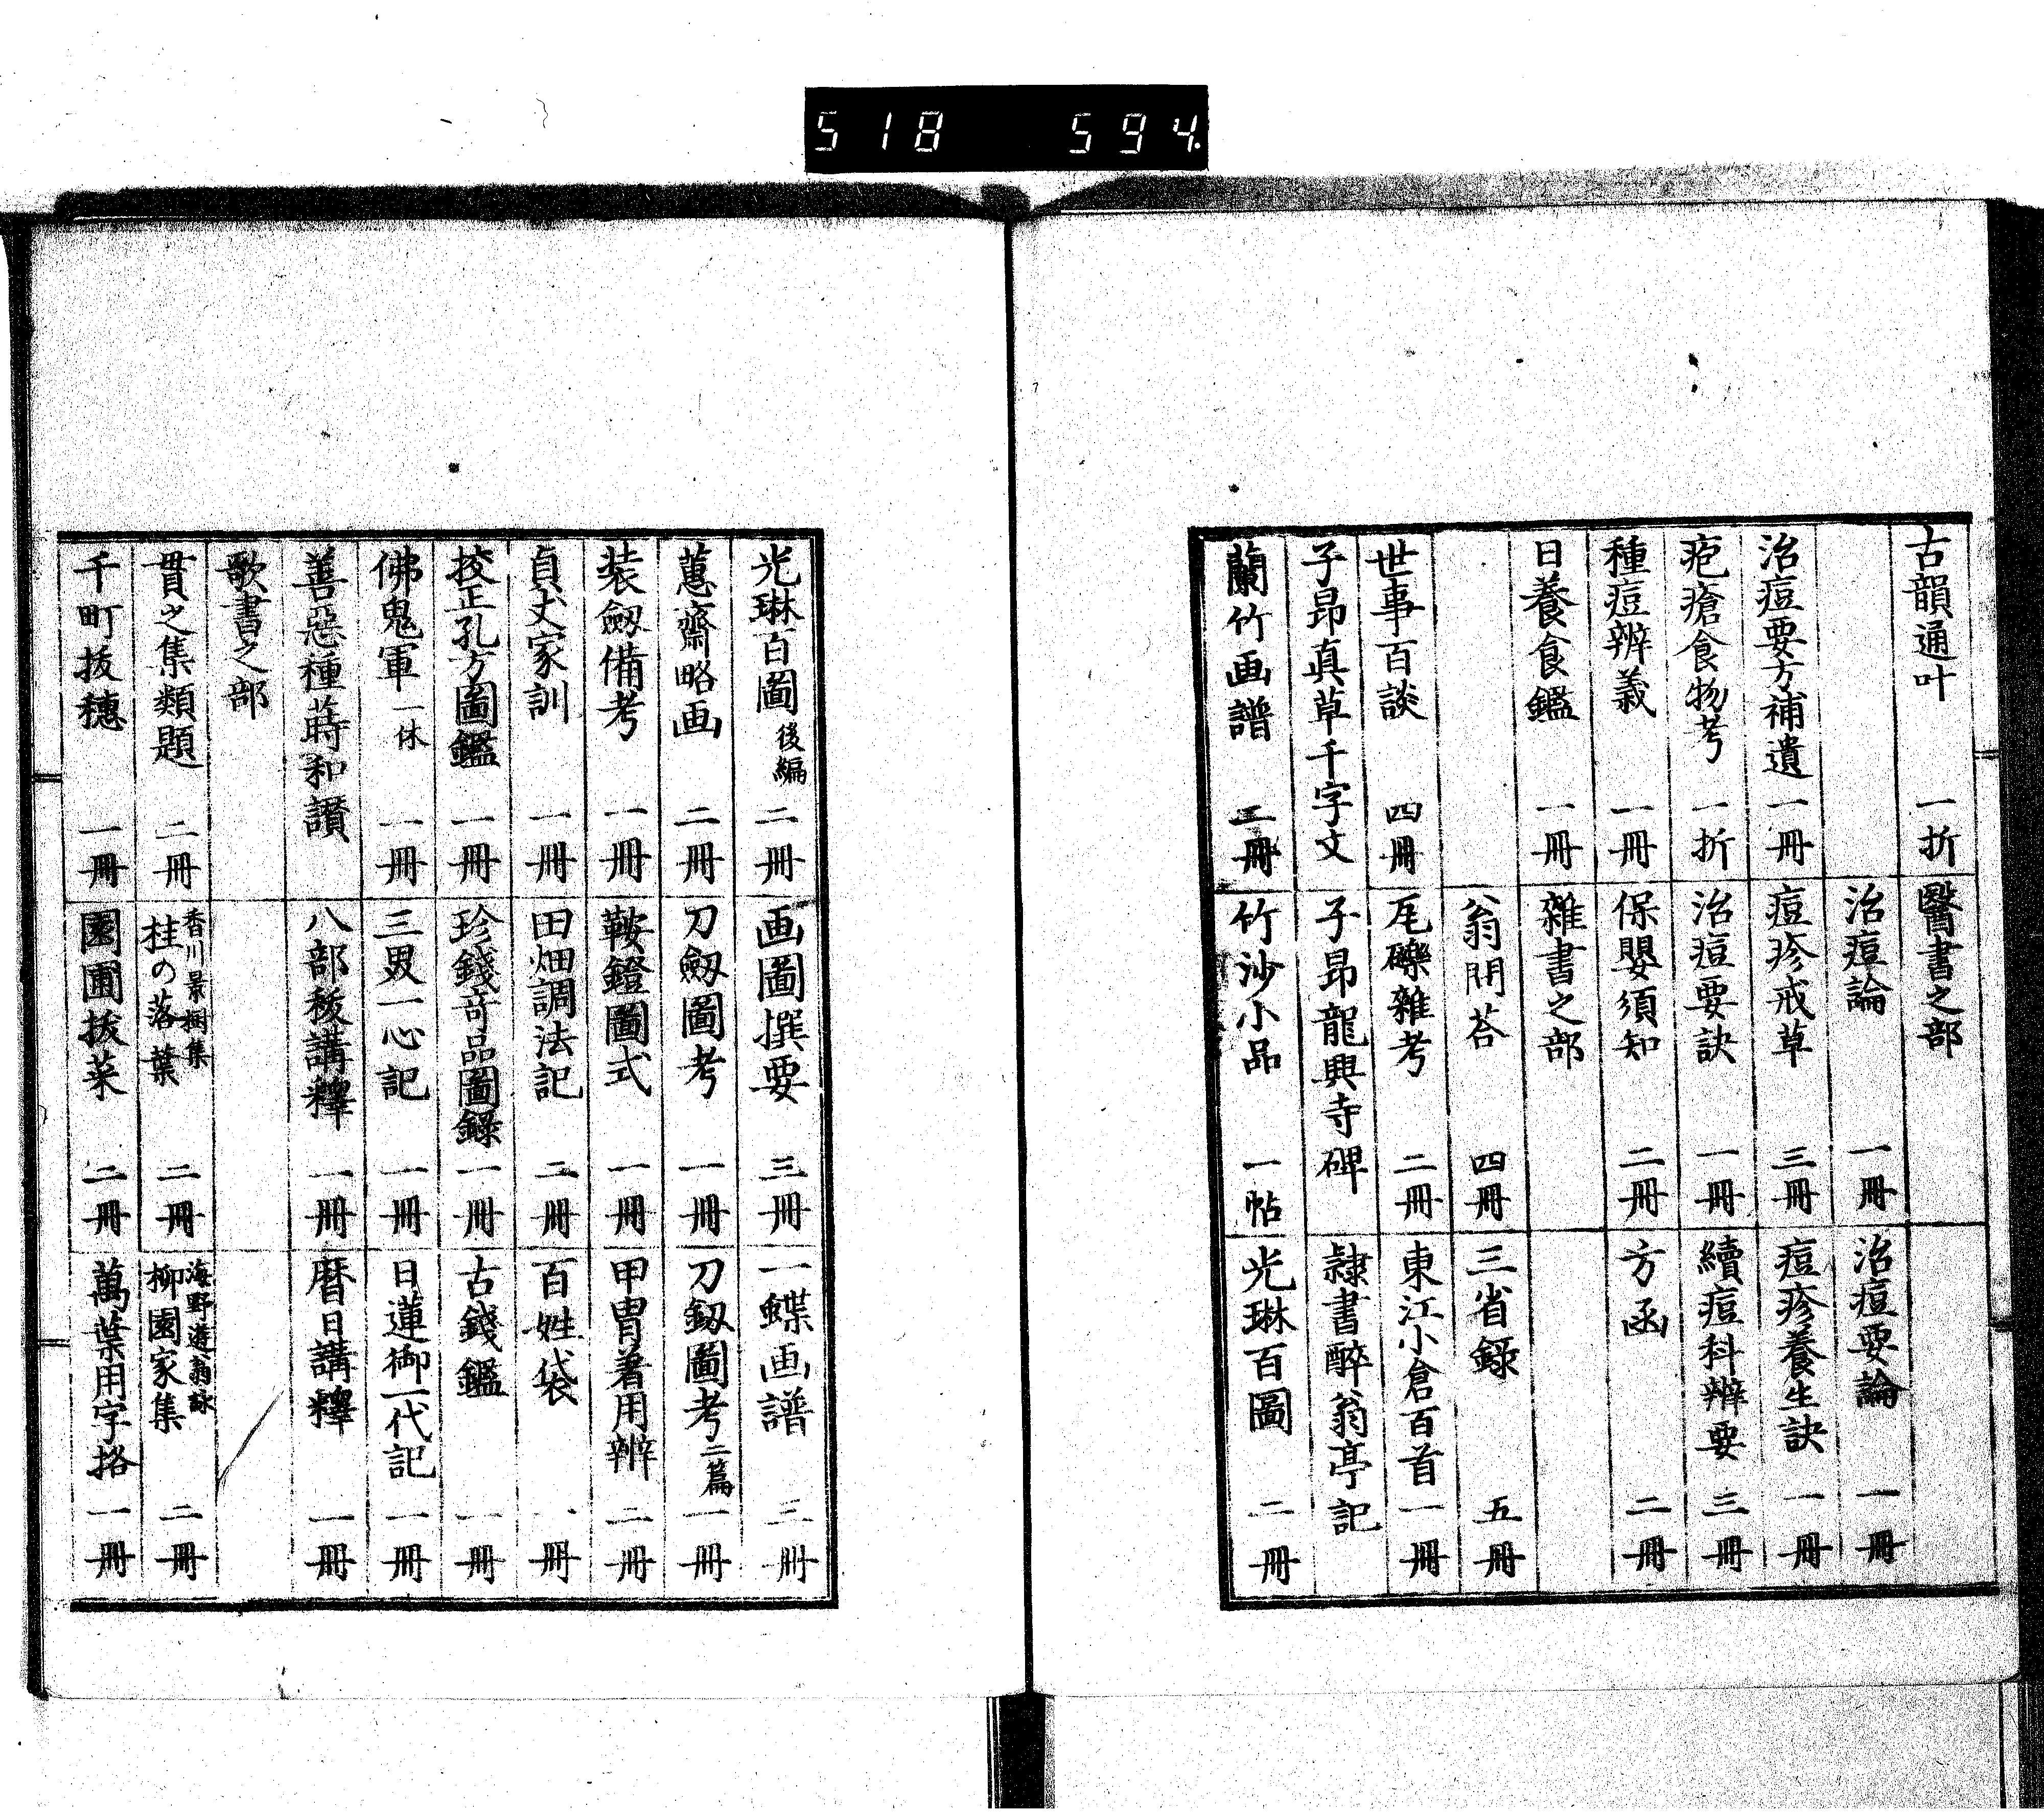 518 594.
古韻通叶 一折
醫書之部
治痘論 一冊
治痘要論 一冊
治痘要方補遺 一冊
痘疹戒草 三冊
痘疹養生訣 一冊
疱瘡食物考 一折
治痘要訣 一冊
續痘科辨要 三冊
種痘辨義 一冊
保嬰須知 二冊
方函 二冊
日養食鑑 一冊
雜書之部
翁問荅 四冊
三省錄 五冊
世事百談 四冊
瓦礫雜考 二冊
東江小倉百首 一冊
子昂真草千字文
子昂龍興寺碑
隷書醉翁亭記
蘭竹画譜 二冊
竹沙小品 一帖
光琳百圖 二冊
光琳百圖 後編 二冊
画圖撰要 三冊
一蝶画譜 三冊
蕙齋略画 二冊
刀劔圖考 一冊
刀劔圖考 二篇 一冊
装劔備考 一冊
鞍鐙圖式 一冊
甲冑著用辨 二冊
貞丈家訓 一冊
田畑調法記 二冊
百姓袋 一冊
挍正孔方圖鑑 一冊
珍錢竒品圖錄 一冊
古錢鑑 一冊
佛鬼軍 一休 一冊
三界一心記 一冊
日蓮御一代記 一冊
善惡種蒔和讃
八部秡講釋 一冊
暦日講釋 一冊
歌書之部
貫之集類題 二冊
香川景樹集
桂の落葉 二冊
海野遊翁詠
柳園家集 二冊
千町抜穗 一冊
園圃拔菜 二冊
萬葉用字格 一冊